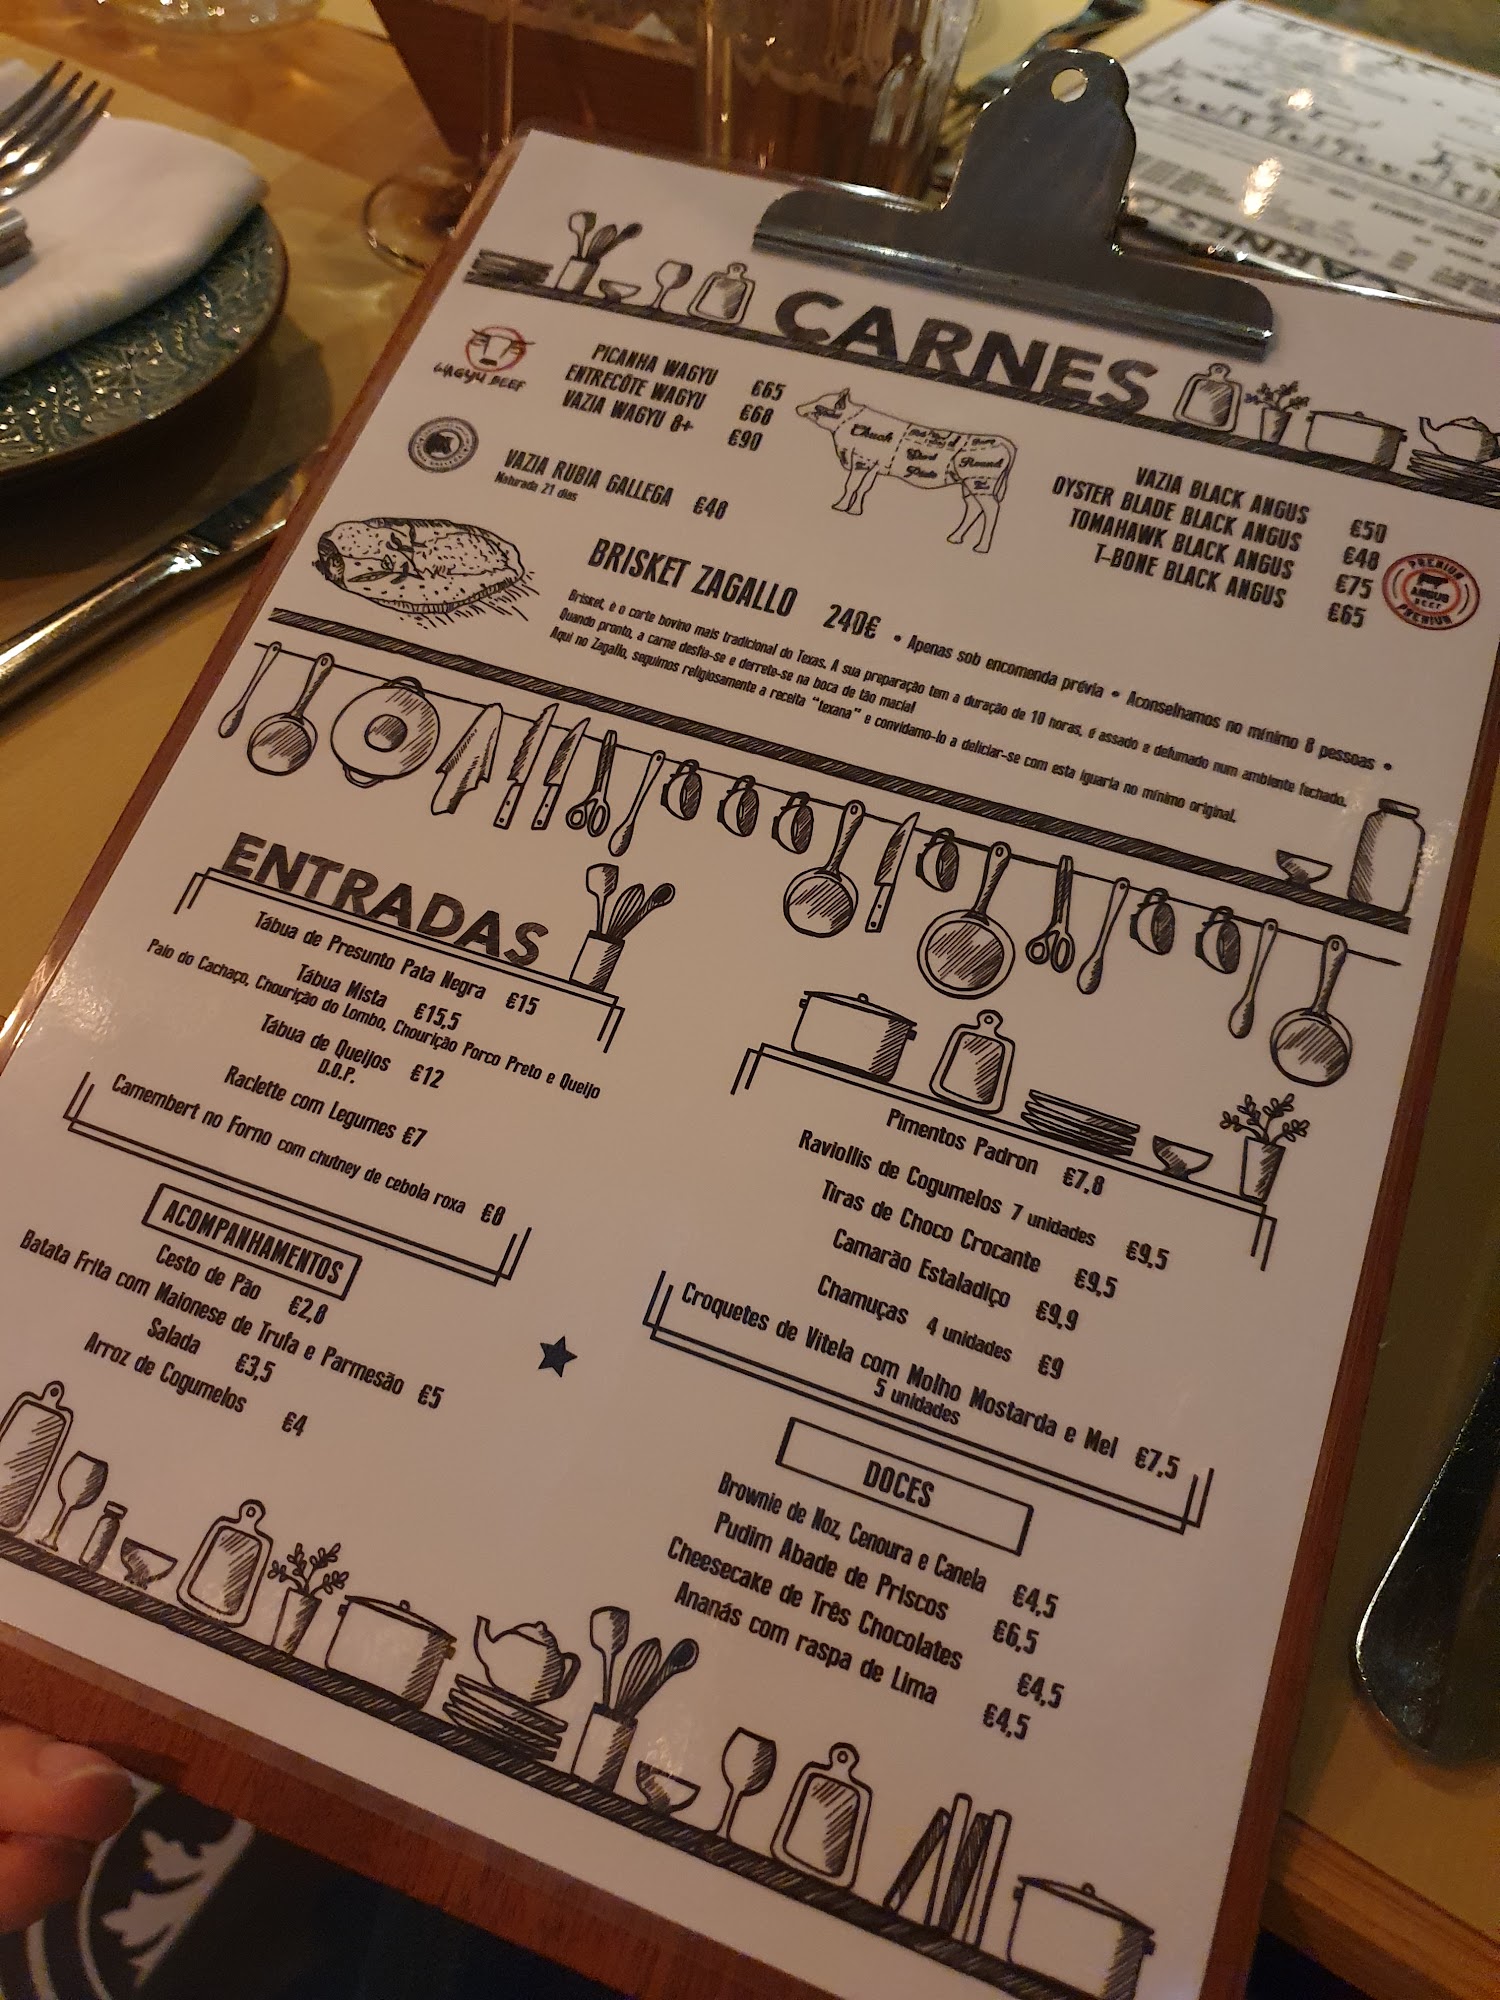 CARNES
WAGYU BEEF
PICANHA WAGYU €65
ENTRECÔTE WAGYU €68
VAZIA WAGYU 8+ €90
VAZIA RUBIA GALLEGA €48
Maturada 21 dias
Chuck
Round
VAZIA BLACK ANGUS €50
OYSTER BLADE BLACK ANGUS €48
TOMAHAWK BLACK ANGUS €75
T-BONE BLACK ANGUS €65
PREMIUM
ANGUS
BEEF
PREMIUM
BRISKET ZAGALLO 240€ • Apenas sob encomenda prévia • Aconselhamos no mínimo 8 pessoas •
Brisket, é o corte bovino mais tradicional do Texas. A sua preparação tem a duração de 10 horas, é assado e defumado num ambiente fechado.
Quando pronto, a carne desfia-se e derrete-se na boca de tão macia!
Aqui no Zagallo, seguimos religiosamente a receita "texana" e convidamo-lo a deliciar-se com esta iguaria no mínimo original.
ENTRADAS
Tábua de Presunto Pata Negra €15
Tábua Mista €15,5
Paio do Cachaço, Chouriço do Lombo, Chouriço Porco Preto e Queijo
Tábua de Queijos €12
D.O.P.
Raclette com Legumes €7
Camembert no Forno com chutney de cebola roxa €8
Pimentos Padron €7,8
Raviollis de Cogumelos 7 unidades €9,5
Tiras de Choco Crocante €9,5
Camarão Estaladiço €9,9
Chamuças 4 unidades €9
Croquetes de Vitela com Molho Mostarda e Mel €7,5
5 unidades
ACOMPANHAMENTOS
Cesto de Pão €2,8
Batata Frita com Maionese de Trufa e Parmesão €5
Salada €3,5
Arroz de Cogumelos €4
DOCES
Brownie de Noz, Cenoura e Canela €4,5
Pudim Abade de Priscos €6,5
Cheesecake de Três Chocolates €4,5
Ananás com raspa de Lima €4,5